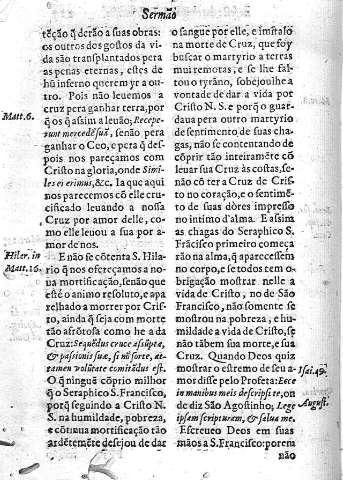 Sermão
tẽção q̃ derão a suas obras:
os outros dos gostos da vi-
da são transplantados pera
as penas eternas, estes de
hũ inferno querem yr a ou-
tro. Pois não leuemos a
cruz pera ganhar terra, por
q̃ os q̃ assim a leuão; Recepe-
runt mercedẽ suã, senão pera
ganhar o Ceo, e pera q̃ des-
pois nos pareçamos com
Cristo na gloria, onde Simi-
les ei erimus, &c. Ia que aqui
nos parecemos cõ elle cru-
cificado leuando a nossa
Cruz por amor delle, co-
mo elle leuou a sua por a-
mor de nos.
E não se cõtenta S. Hila-
rio q̃ nos ofereçamos a no-
ua mortificação, senão que
estè o animo resoluto, e apa
relhado a morrer por Cris-
to, ainda q̃ seja com morte
tão afrõtosa como he a da
Cruz: Sequẽdus cruce assũpta,
& passionis suæ, si nõ sorte, at-
tamen volũtate comitãdus est.
O q̃ ninguẽ cõprio milhor
q̃ o Seraphico S. Francisco,
porq̃ seguindo a Cristo N.
S. na humildade, pobreza,
e continua mortificação tão
ardẽtemẽte desejou de dar
Matt. 6.
Hiler. in
Matt. 16.
o sangue por elle, e imitalo
na morte de Cruz, que foy
buscar o martyrio a terras
mui remotas, e se lhe fal-
tou o tyrãno, sobejoulhe a
vontade de dar a vida por
Cristo N. S. e porq̃ o guar-
daua pera outro martyrio
de sentimento de suas cha-
gas, não se contentando de
cõprir tão inteiramẽte cõ
leuar sua Cruz às costas, se-
não cõ ter a Cruz de Cris-
to no coração, e o sentimẽ-
to de suas dòres impresso
no intimo d'alma. E assim
as chagas do Seraphico S.
Frãcisco primeiro começa
rão na alma, q̃ aparecessem
no corpo, e se todos tem o-
brigação mostrar nelle a
vida de Cristo, no de São
Francisco, não somente se
mostrou na pobreza, e hu-
mildade a vida de Cristo, se
não tãbem sua morte, e sua
Cruz. Quando Deos quiz
mostrar o estremo de seu a-
mor disse pelo Profeta: Ecce
in manibus meis descripsi te, on
de diz São Agostinho; Lege
ipsam scripturam, & salua me.
Escreueo Deos em suas
mãos a S. Francisco: porem
não
Isai. 49.
August.